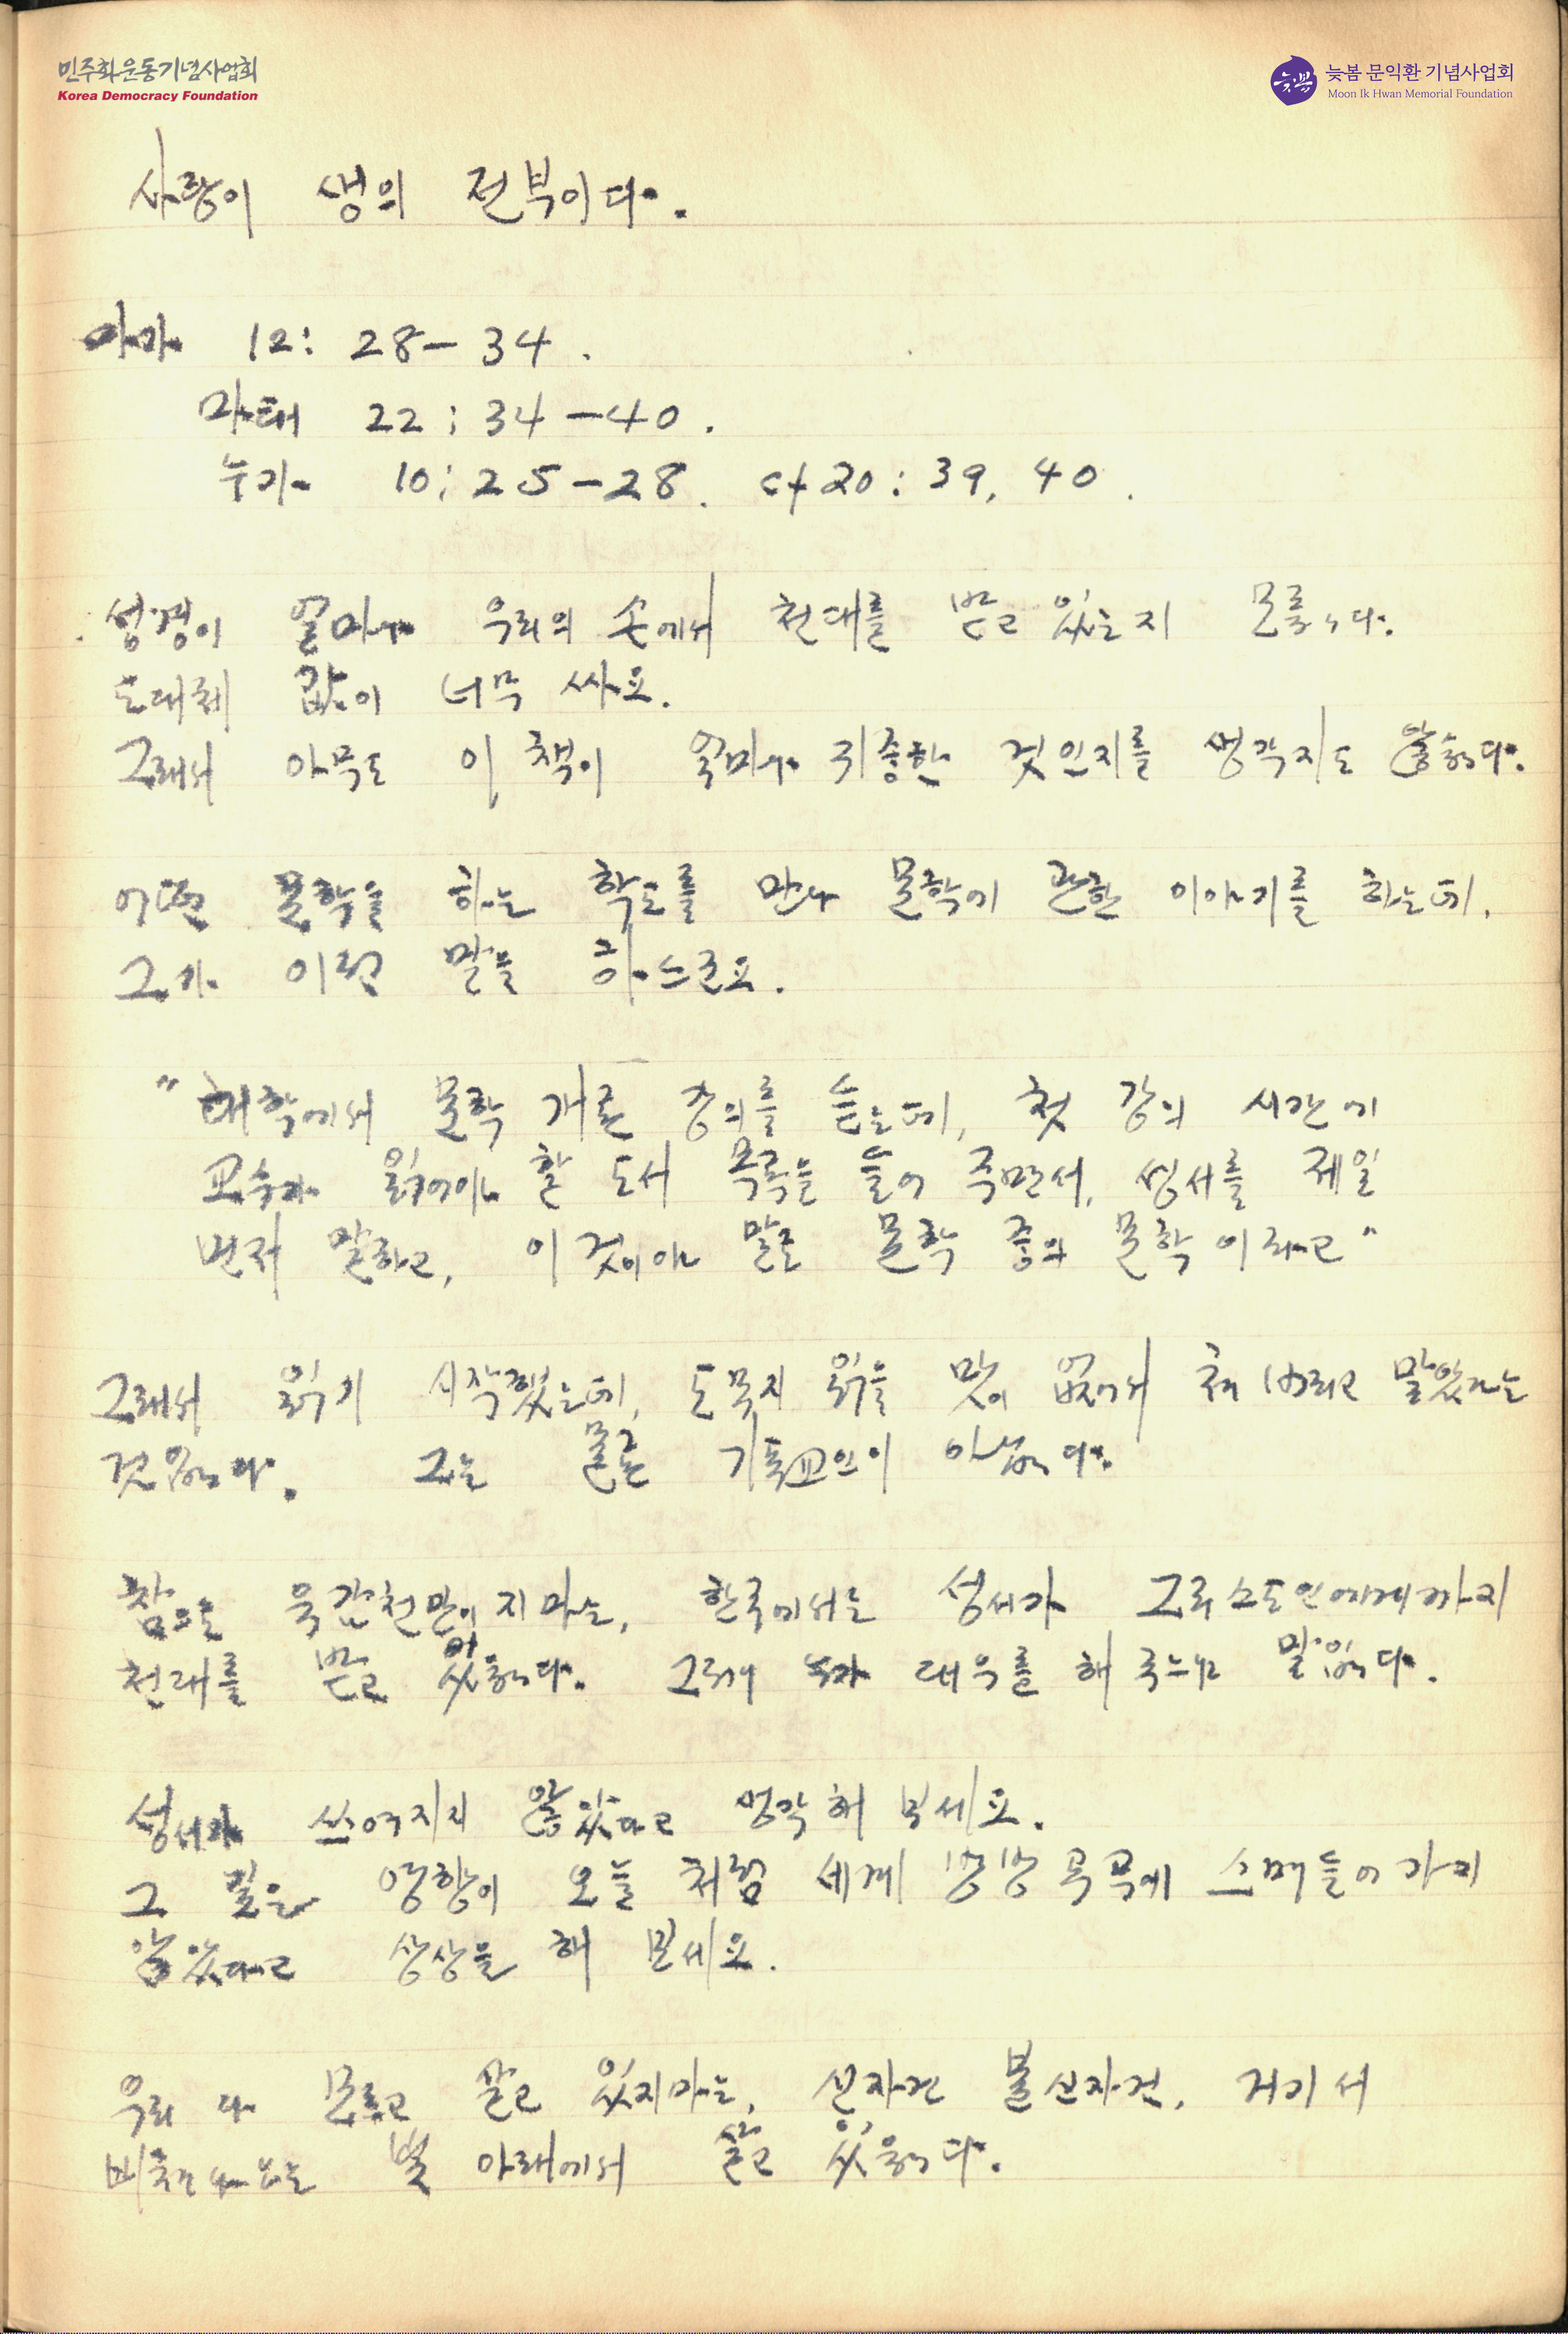 민주화운동기념사업회
Korea Democracy Foundation
늦봄
늦봄 문익환 기념사업회
Moon Ik Hwan Memorial Foundation
사랑이 생의 전부이다.
마가 12: 28-34.
마태 22: 34-40.
누가 10: 25-28. cf 20: 39, 40.
성경이 얼마나 우리의 손에서 천대를 받고 있는지 모릅니다.
도대체 값이 너무 싸요.
그래서 아무도 이 책이 얼마나 귀중한 것인지를 생각지도 않습니다.
어떤 문학을 하는 학도를 만나 문학에 관한 이야기를 하는데,
그가 이런 말을 하드군요.
"대학에서 문학 개론 강의를 듣는데, 첫 강의 시간에
교수가 읽어야 할 도서 목록을 들어 주면서, 성서를 제일
먼저 말하고, 이것이야 말로 문학 중의 문학이라고"
그래서 읽기 시작했는데, 도무지 읽을 맛이 없어서 치 버리고 말았다는
것입니다. 그는 물론 기독교인이 아닙니다.
참으로 유감천만이지마는, 한국에서는 성서가 그리스도인에게까지
천대를 받고 있읍니다. 그러니 누가 대우를 해 주느냐 말입니다.
성서가 쓰여지지 않았다고 생각해 보세요.
그 깊은 영향이 오늘 처럼 세계 방방곡곡에 스며들어가지
않았다고 상상을 해 보세요.
우리 다 모르고 살고 있지마는, 신자건 불신자건, 거기서
비쳐나오는 빛 아래에서 살고 있읍니다.